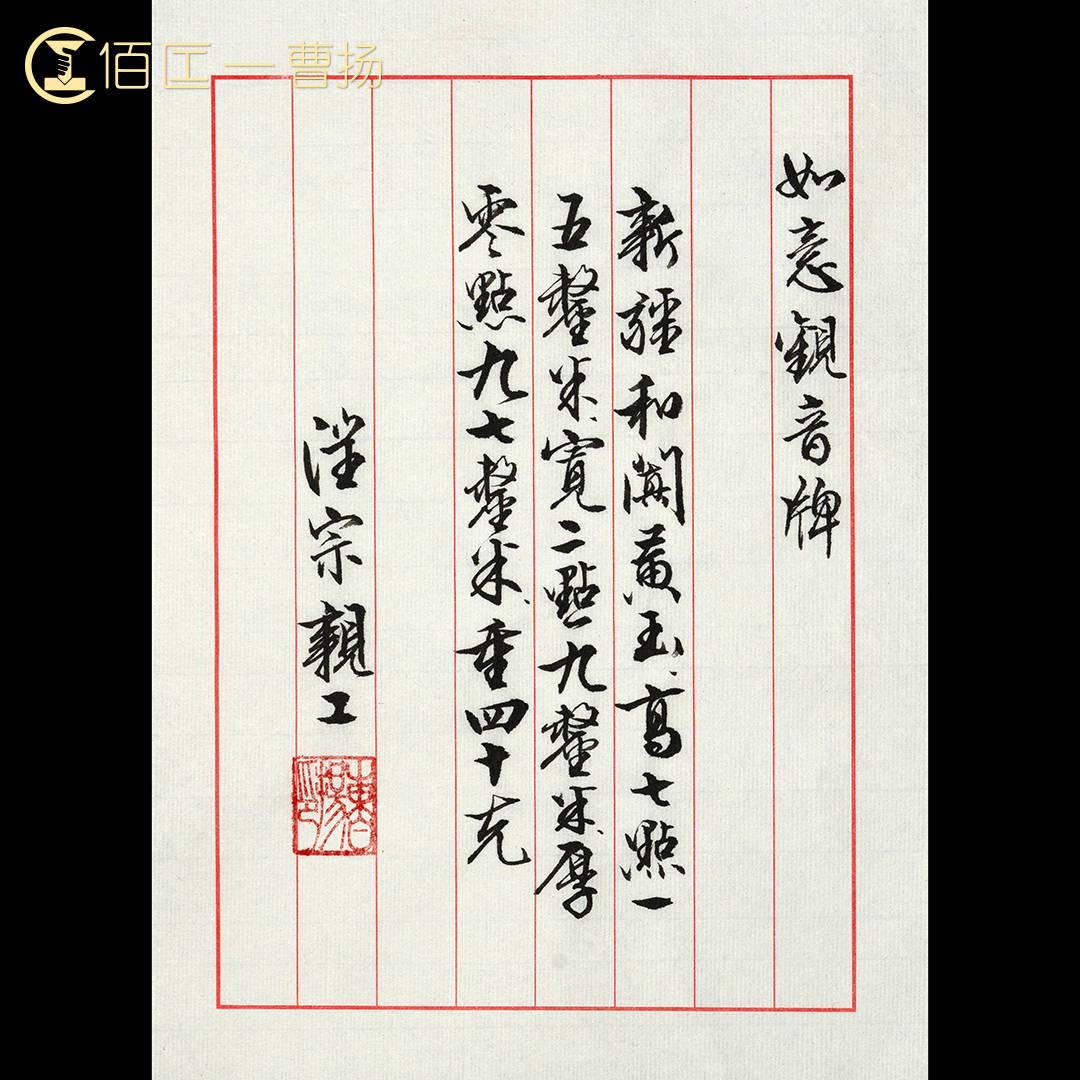 佰匠一曹扬
如意觀音牌
新疆和闐黄玉、高七點一
五釐米、寬二點一九釐米、厚
零點九七釐米、重四十克
宗親工